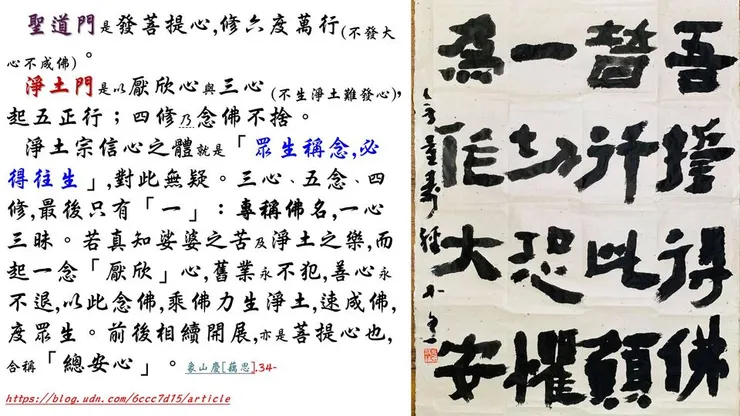 聖道門是發菩提心,修六度萬行(不發大
心不成佛)。
淨土門是以厭欣心與三心(不生淨土難發心),
起五正行；四修乃念佛不捨。
淨土宗信心之體就是「眾生稱念,必
得往生」,對此無疑。三心、五念、四
修,最後只有「一」：專稱佛名,一心
三昧。若真知娑婆之苦及淨土之樂,而
起一念「厭欣」心,舊業永不犯,善心永
不退,以此念佛,乘佛力生淨土,速成佛,
度眾生。前後相續開展,亦是菩提心也,
合稱「總安心」。象山慶[藕思].34-
https://blog.udn.com/6ccc7d15/article
吾誓得佛
普行此願
一切恐懼
為作大安
量壽經